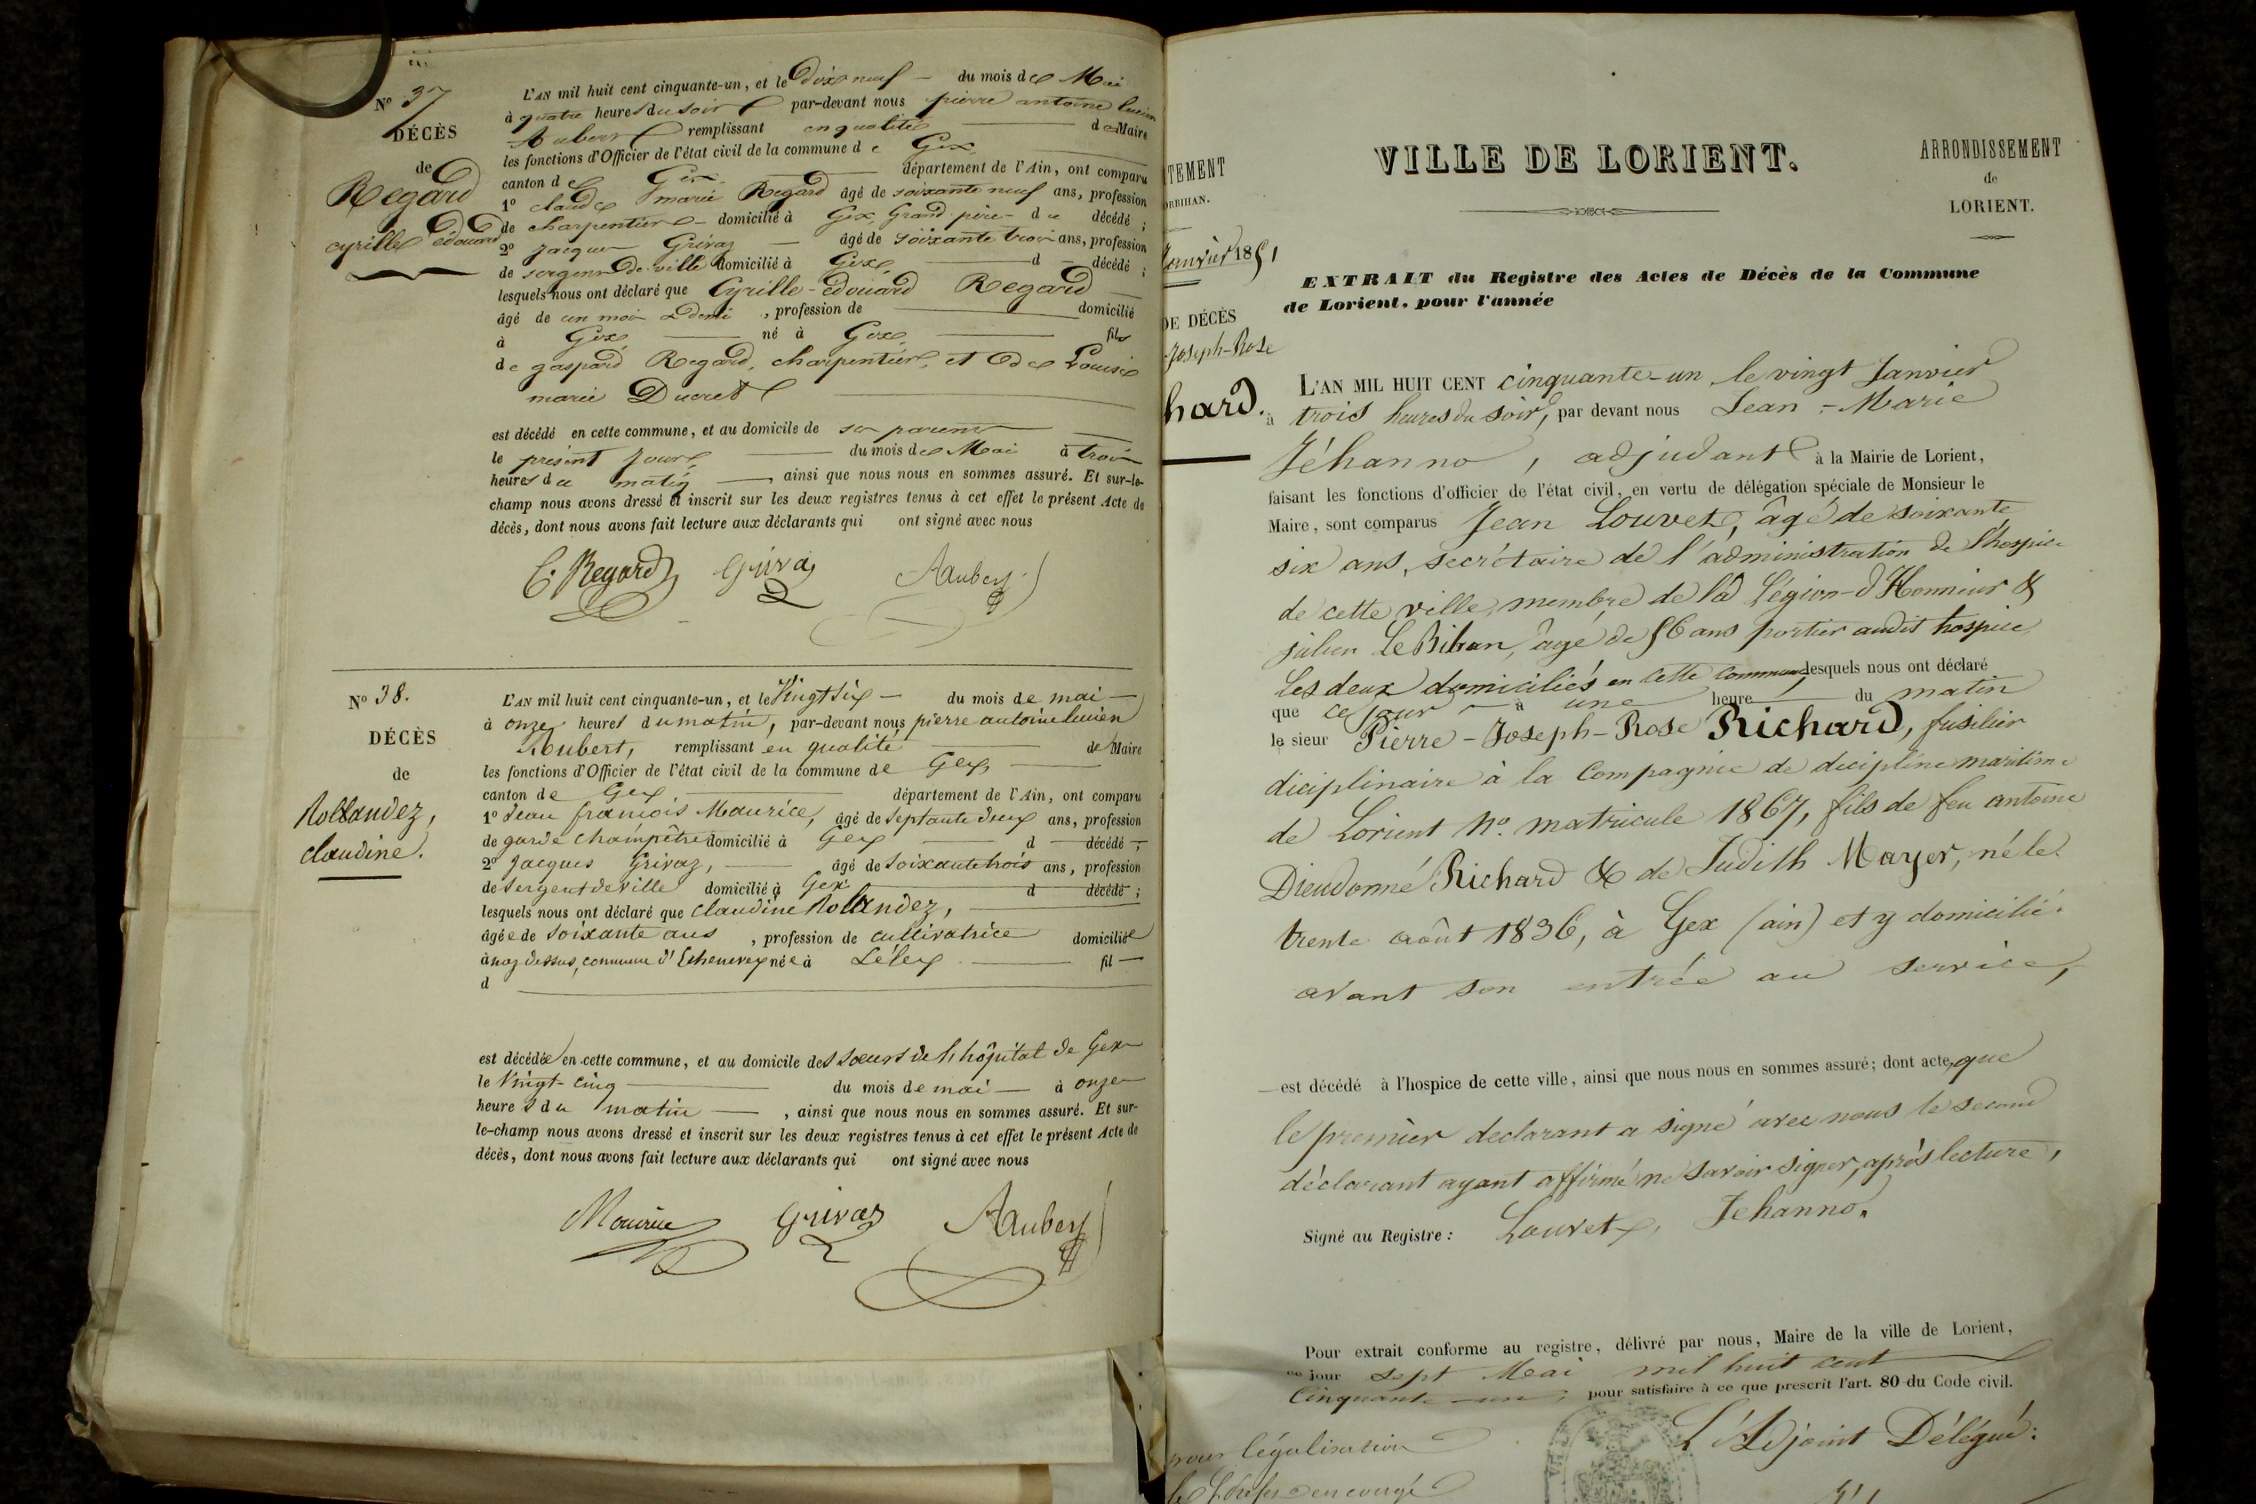 N° 37
DÉCÈS
de
Regard
cyrille édouard
L'AN mil huit cent cinquante-un, et le dix neuf du mois de Mai
à quatre heures du soir par-devant nous pierre antoine lucien
Aubert remplissant en qualité de Maire
les fonctions d'Officier de l'état civil de la commune de Gex
canton de Gex département de l'Ain, ont comparu
1° claude marie Regard âgé de soixante neuf ans, profession
de charpentier domicilié à Gex Grand père du décédé ;
2° Jacques Grivaz âgé de soixante trois ans, profession
de sergent de ville domicilié à Gex d décédé ;
lesquels nous ont déclaré que Cyrille-édouard Regard
âgé de un mois & demi , profession de domicilié
à Gex né à Gex fils
de gaspard Regard, charpentier, et de Louise
marie Ducret
est décédé en cette commune, et au domicile de ses parents
le présent jour du mois de Mai à trois
heures du matin , ainsi que nous nous en sommes assuré. Et sur-le-
champ nous avons dressé et inscrit sur les deux registres tenus à cet effet le présent Acte de
décès, dont nous avons fait lecture aux déclarants qui ont signé avec nous
C. Regard Grivaz Aubert
N° 38.
DÉCÈS
de
Rollandez,
claudine.
L'AN mil huit cent cinquante-un, et le Vingt six du mois de mai
à onze heures du matin, par-devant nous pierre antoine lucien
Aubert, remplissant en qualité de Maire
les fonctions d'Officier de l'état civil de la commune de Gex
canton de Gex département de l'Ain, ont comparu
1° Jean françois Maurice, âgé de septante deux ans, profession
de garde champêtre domicilié à Gex d décédé ;
2° Jacques Grivaz, âgé de soixante trois ans, profession
de sergent de ville domicilié à Gex d décédé ;
lesquels nous ont déclaré que claudine Rollandez,
âgée de soixante ans , profession de cultivatrice domiciliée
à naz dessus, commune d'Echenevex née à Lélex fil
d
est décédée en cette commune, et au domicile des soeurs de l'hôpital de Gex
le Vingt-cinq du mois de mai à onze
heures du matin , ainsi que nous nous en sommes assuré. Et sur-
le-champ nous avons dressé et inscrit sur les deux registres tenus à cet effet le présent Acte de
décès, dont nous avons fait lecture aux déclarants qui ont signé avec nous
Maurice Grivaz Aubert
TEMENT
ORBIHAN.
VILLE DE LORIENT.
ARRONDISSEMENT
de
LORIENT.
Janvier 1851
DE DÉCÈS
Joseph-Rose
hard.
EXTRAIT du Registre des Actes de Décès de la Commune
de Lorient, pour l'année
L'AN MIL HUIT CENT cinquante-un, le vingt Janvier
à trois heures du soir, par devant nous Jean-Marie
Jéhanno, adjudant à la Mairie de Lorient,
faisant les fonctions d'officier de l'état civil, en vertu de délégation spéciale de Monsieur le
Maire, sont comparus Jean Louvet, âgé de soixante
six ans, secrétaire de l'administration de l'hospice
de cette ville, membre de la Légion-d'Honneur &
julien Le Bihan, âgé de 56 ans portier audit hospice
Les deux domiciliés en cette commune, lesquels nous ont déclaré
que ce jour à une heure du matin
le sieur Pierre-Joseph-Rose Richard, fusilier
diciplinaire à la Compagnie de dicipline maritime
de Lorient n°. matricule 1867, fils de feu antoine
Dieudonné Richard & de Judith Mayer, né le
trente août 1836, à Gex (ain) et y domicilié
avant son entrée au service,
est décédé à l'hospice de cette ville, ainsi que nous nous en sommes assuré; dont acte, que
le premier declarant a signé avec nous le second
déclarant ayant affirmé ne savoir signer, après lecture,
Signé au Registre : Louvet, Jehanno.
Pour extrait conforme au registre, délivré par nous, Maire de la ville de Lorient,
ce jour sept Mai mil huit cent
Cinquante-un, pour satisfaire à ce que prescrit l'art. 80 du Code civil.
L'Adjoint Délégué:
pour légalisation